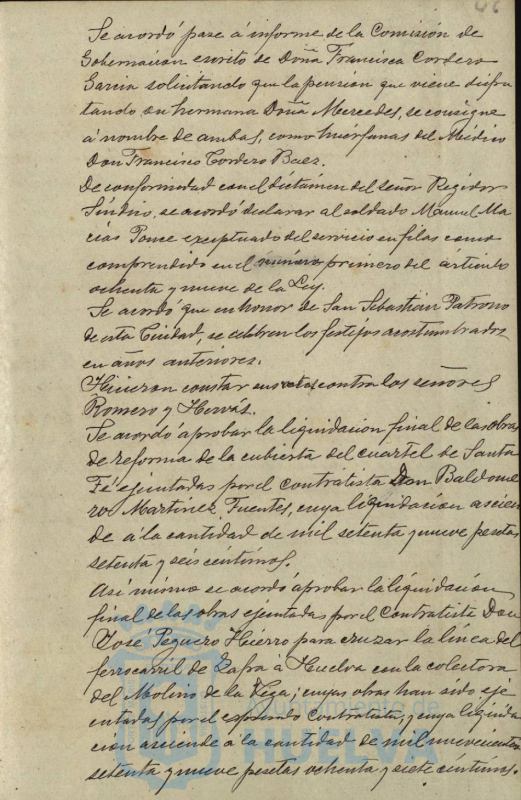 46
Se acordó pase á informe de la Comisión de
Gobernacion escrito de Doña Francisca Cordero
Garcia solicitando que la pension que viene disfru
tando su hermana Doña Mercedes, se consigne
á nombre de ambas, como huerfanas del Médico
Don Francisco Cordero Baez.
De conformidad con el dictámen del señor Regidor
Síndico, se acordó declarar al soldado Manuel Ma
cias Ponce exceptuado del servicio en filas como
comprendido en el número primero del artículo
ochenta y nueve de la Ley.
Se acordó que en honor de San Sebastian Patrono
de esta Ciudad, se celebren los festejos acostumbrados
en años anteriores.
Hicieron constar sus votos contra los señores
Romero y Hervás.
Se acordó aprobar la liquidacion final de las obras
de reforma de la cubierta del cuartel de Santa
Fé ejecutadas por el contratista Don Baldome
ro Martinez Fuentes, cuya liquidacion ascien
de á la cantidad de mil setenta y nueve pesetas
setenta y seis céntimos.
Asi mismo se acordó aprobar la liquidacion
final de las obras ejecutadas por el contratista Don
José Peguero Hierro para cruzar la línea del
ferrocarril de Zafra á Huelva con la colectora
del Molino de la Vega; cuyas obras han sido eje
cutadas por el expresado Contratista, y cuya liquida
cion asciende á la cantidad de mil novecientas
setenta y nueve pesetas ochenta y siete céntimos.
Ayuntamiento de
HUELVA